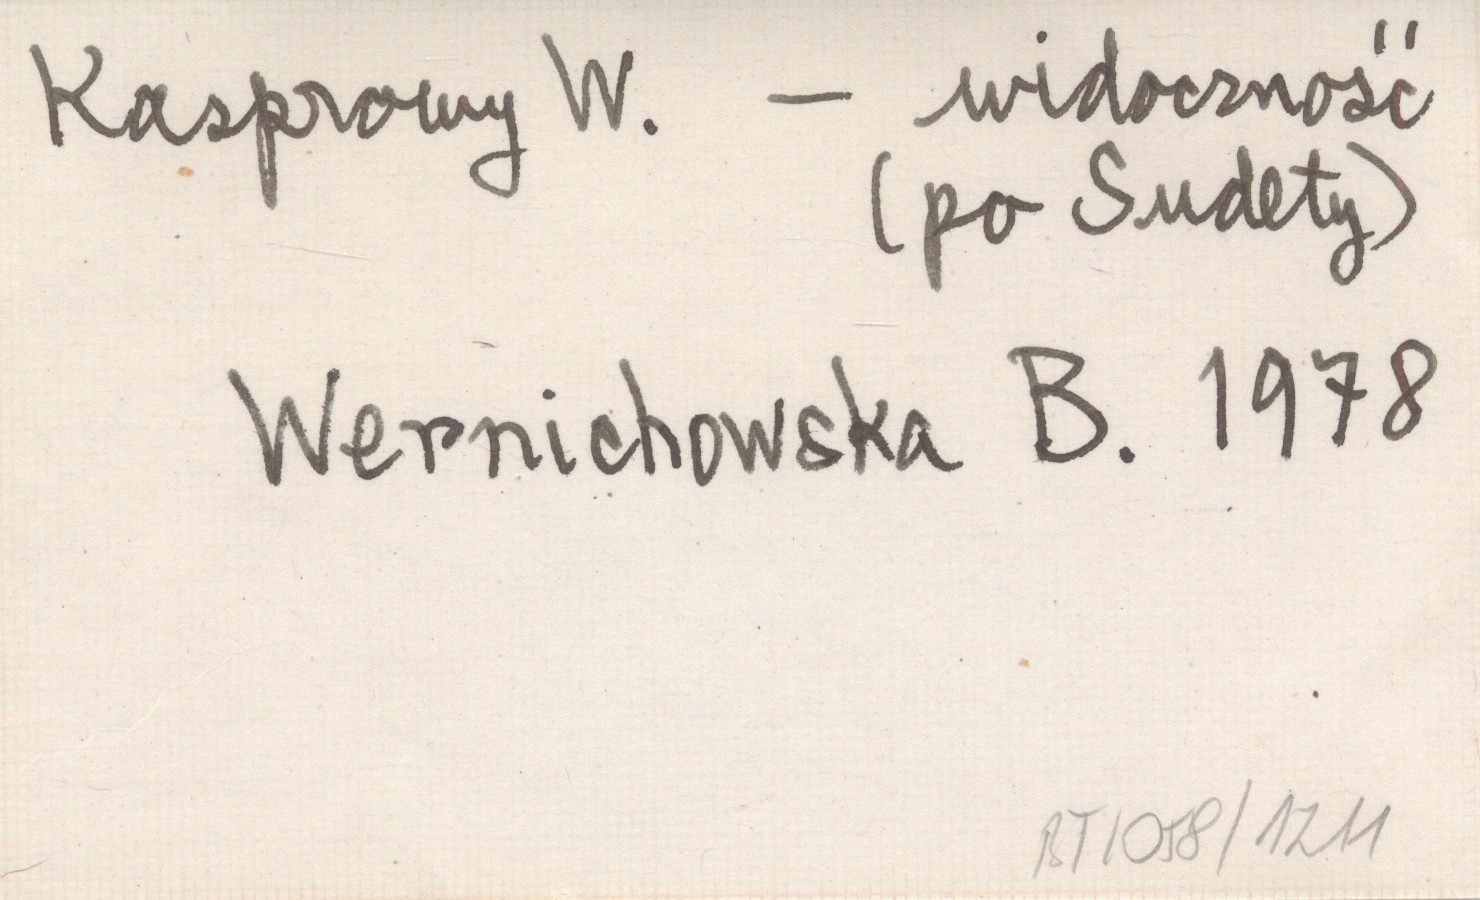 Kasprowy W. — widoczność
(po Sudety)
Wernichowska B. 1978
BT/058/1211